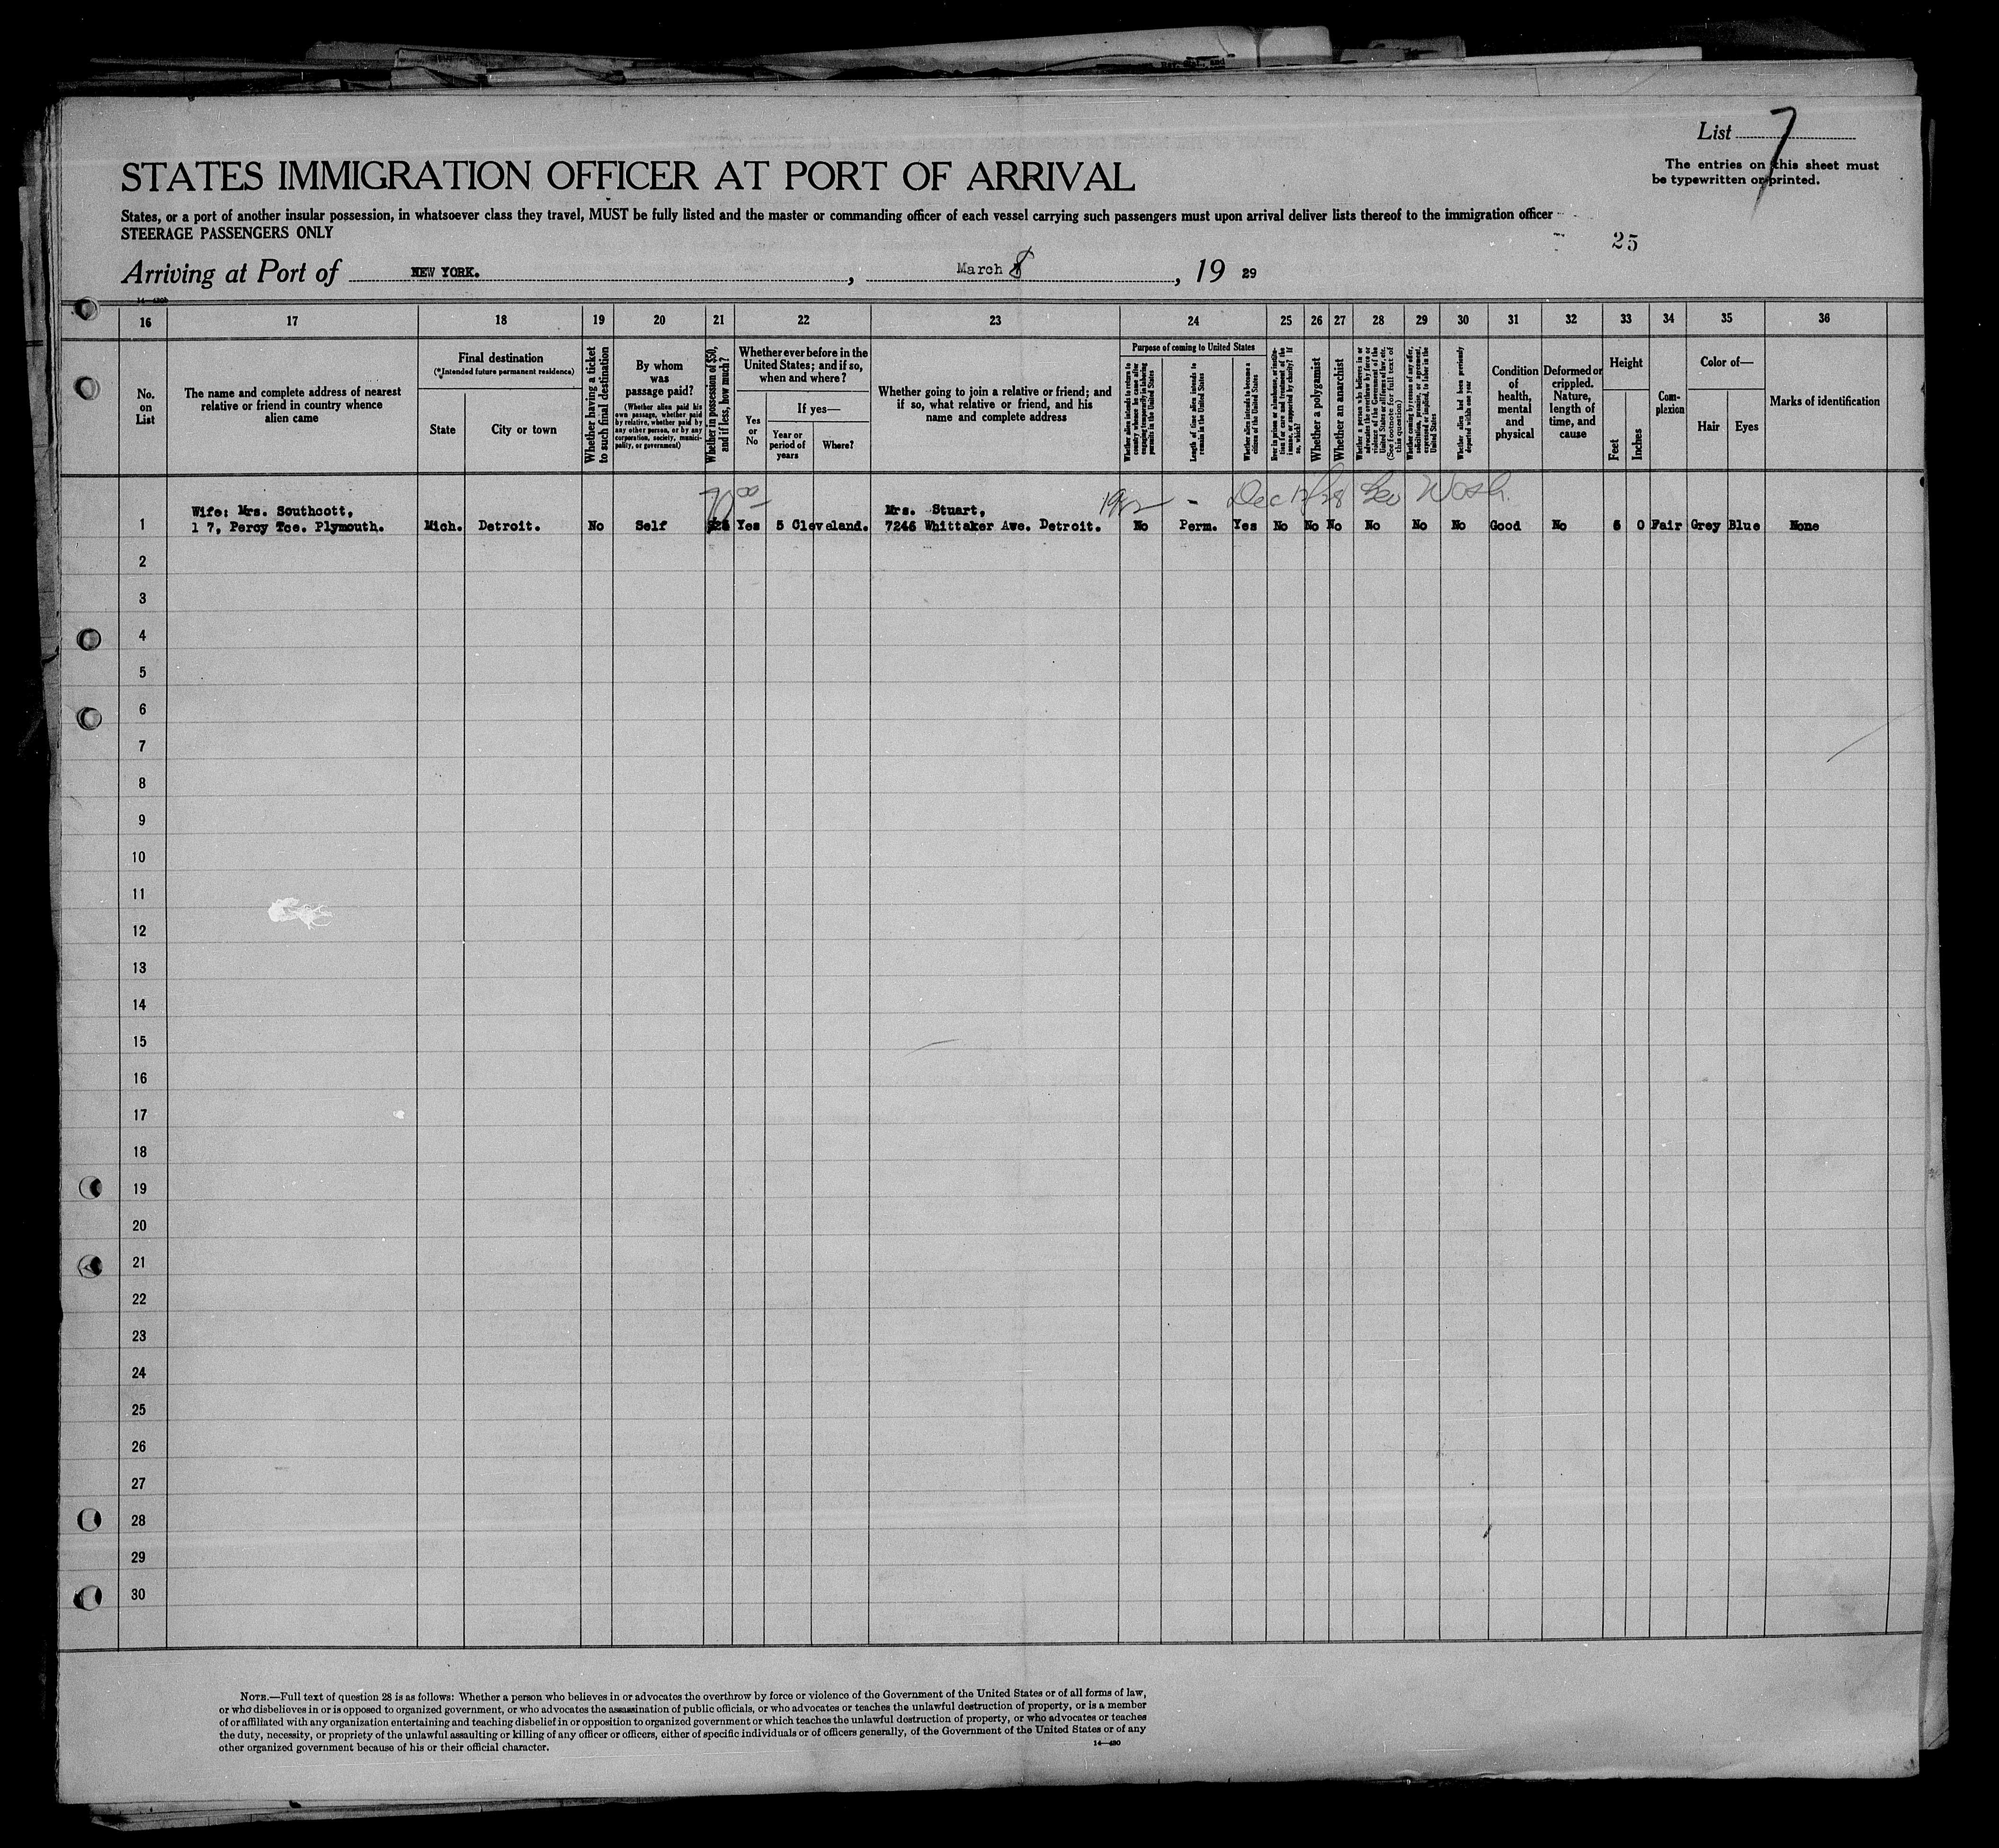 List 7
The entries on this sheet must
be typewritten or printed.
STATES IMMIGRATION OFFICER AT PORT OF ARRIVAL
States, or a port of another insular possession, in whatsoever class they travel, MUST be fully listed and the master or commanding officer of each vessel carrying such passengers must upon arrival deliver lists thereof to the immigration officer
STEERAGE PASSENGERS ONLY
25
Arriving at Port of NEW YORK. , March 8 , 19 29
16 17 18 19 20 21 22 23 24 25 26 27 28 29 30 31 32 33 34 35 36
No.
on
List
The name and complete address of nearest
relative or friend in country whence
alien came
Final destination
(*Intended future permanent residence)
State
City or town
Whether having a ticket
to such final destination
By whom
was
passage paid?
(Whether alien paid his
own passage, whether paid
by relative, whether paid by
any other person, or by any
corporation, society, munici-
pality, or government)
Whether in possession of $50,
and if less, how much?
Whether ever before in the
United States; and if so,
when and where?
Yes
or
No
If yes—
Year or
period of
years
Where?
Whether going to join a relative or friend; and
if so, what relative or friend, and his
name and complete address
Purpose of coming to United States
Whether alien intends to return to
country whence he came after
engaging temporarily in laboring
pursuits in the United States
Length of time alien intends to
remain in the United States
Whether alien intends to become a
citizen of the United States
Ever in prison or almshouse, or institu-
tion for care and treatment of the
insane, or supported by charity? If
so, which?
Whether a polygamist
Whether an anarchist
Whether a person who believes in or
advocates the overthrow by force or
violence of the Government of the
United States or all forms of law, etc.
(See footnote for full text of
this question)
Whether coming by reason of any offer,
solicitation, promise, or agreement,
expressed or implied, to labor in the
United States
Whether alien had been previously
deported within one year
Condition
of
health,
mental
and
physical
Deformed or
crippled.
Nature,
length of
time, and
cause
Height
Feet
Inches
Com-
plexion
Color of—
Hair
Eyes
Marks of identification
Dec 17/28 Geo Wash.
Wife: Mrs. Southcott, Mrs. Stuart,
1 1 7, Percy Tce. Plymouth. Mich. Detroit. No Self Yes 5 Cleveland. 7246 Whittaker Awe. Detroit. No Perm. Yes No No No No No No Good No 5 0 Fair Grey Blue None
2
3
4
5
6
7
8
9
10
11
12
13
14
15
16
17
18
19
20
21
22
23
24
25
26
27
28
29
30
NOTE.—Full text of question 28 is as follows: Whether a person who believes in or advocates the overthrow by force or violence of the Government of the United States or of all forms of law,
or who disbelieves in or is opposed to organized government, or who advocates the assassination of public officials, or who advocates or teaches the unlawful destruction of property, or is a member
of or affiliated with any organization entertaining and teaching disbelief in or opposition to organized government or which teaches the unlawful destruction of property, or who advocates or teaches
the duty, necessity, or propriety of the unlawful assaulting or killing of any officer or officers, either of specific individuals or of officers generally, of the Government of the United States or of any
other organized government because of his or their official character.
14—430